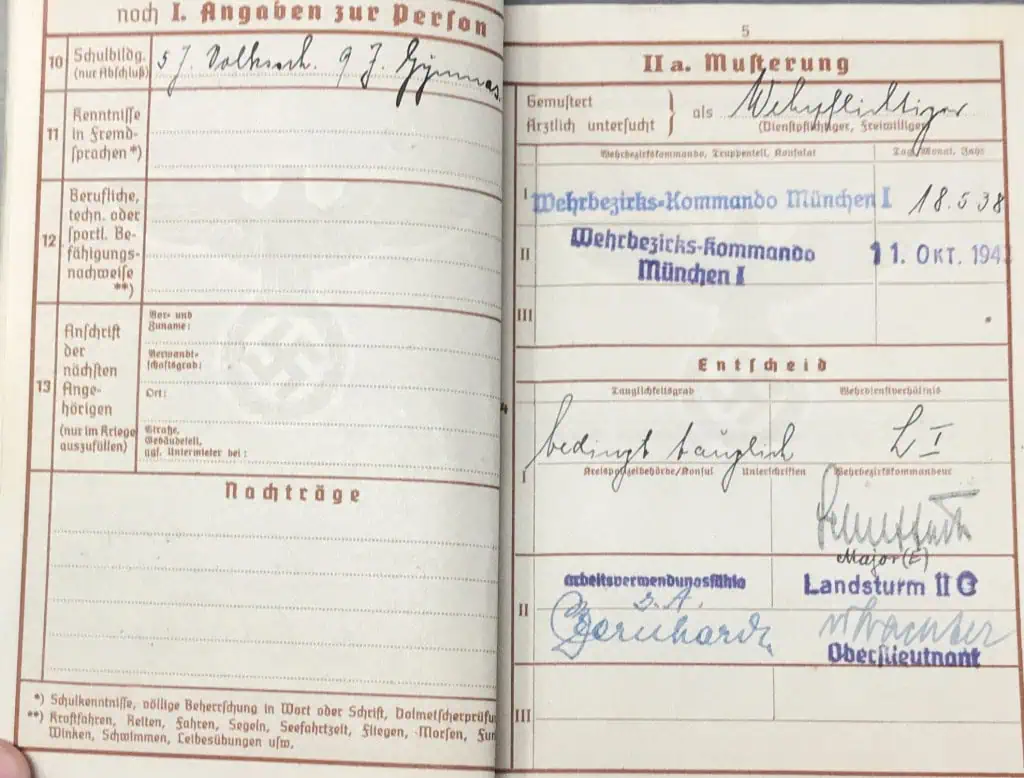 noch I. Angaben zur Person
10
Schulbildg.
(nur Abschluß)
5 J. Volkssch. 9 J. Gymnas.
11
Kenntnisse
in Fremd-
sprachen*)
12
Berufliche,
techn. oder
sportl. Be-
fähigungs-
nachweise
**)
13
Anschrift
der
nächsten
Ange-
hörigen
(nur im Kriege
auszufüllen)
Vor- und
Zuname:
Verwandt-
schaftsgrad:
Ort:
Straße,
Gebäudeteil,
ggf. Untermieter bei:
Nachträge
*) Schulkenntnisse, völlige Beherrschung in Wort oder Schrift, Dolmetscherprüfu
**) Kraftfahren, Reiten, Fahren, Segeln, Seefahrtzeit, Fliegen, Morsen, Fun
Winken, Schwimmen, Leibesübungen usw.
5
IIa. Musterung
Gemustert
Ärztlich untersucht } als Wehrpflichtiger
(Dienstpflichtiger, Freiwilliger)
Wehrbezirkskommando, Truppenteil, Konsulat
Tag, Monat, Jahr
I Wehrbezirks-Kommando München I 18.5 38
II Wehrbezirks-Kommando
München I
11. OKT. 194
III
Entscheid
Tauglichkeitsgrad
Wehrdienstverhältnis
bedingt tauglich L I
I
Kreispolizeibehörde/Konsul Unterschriften Wehrbezirkskommandeur
Major (E)
II
arbeitsverwendungsfähig
Landsturm II
Bernhardt
Oberstleutnant
III